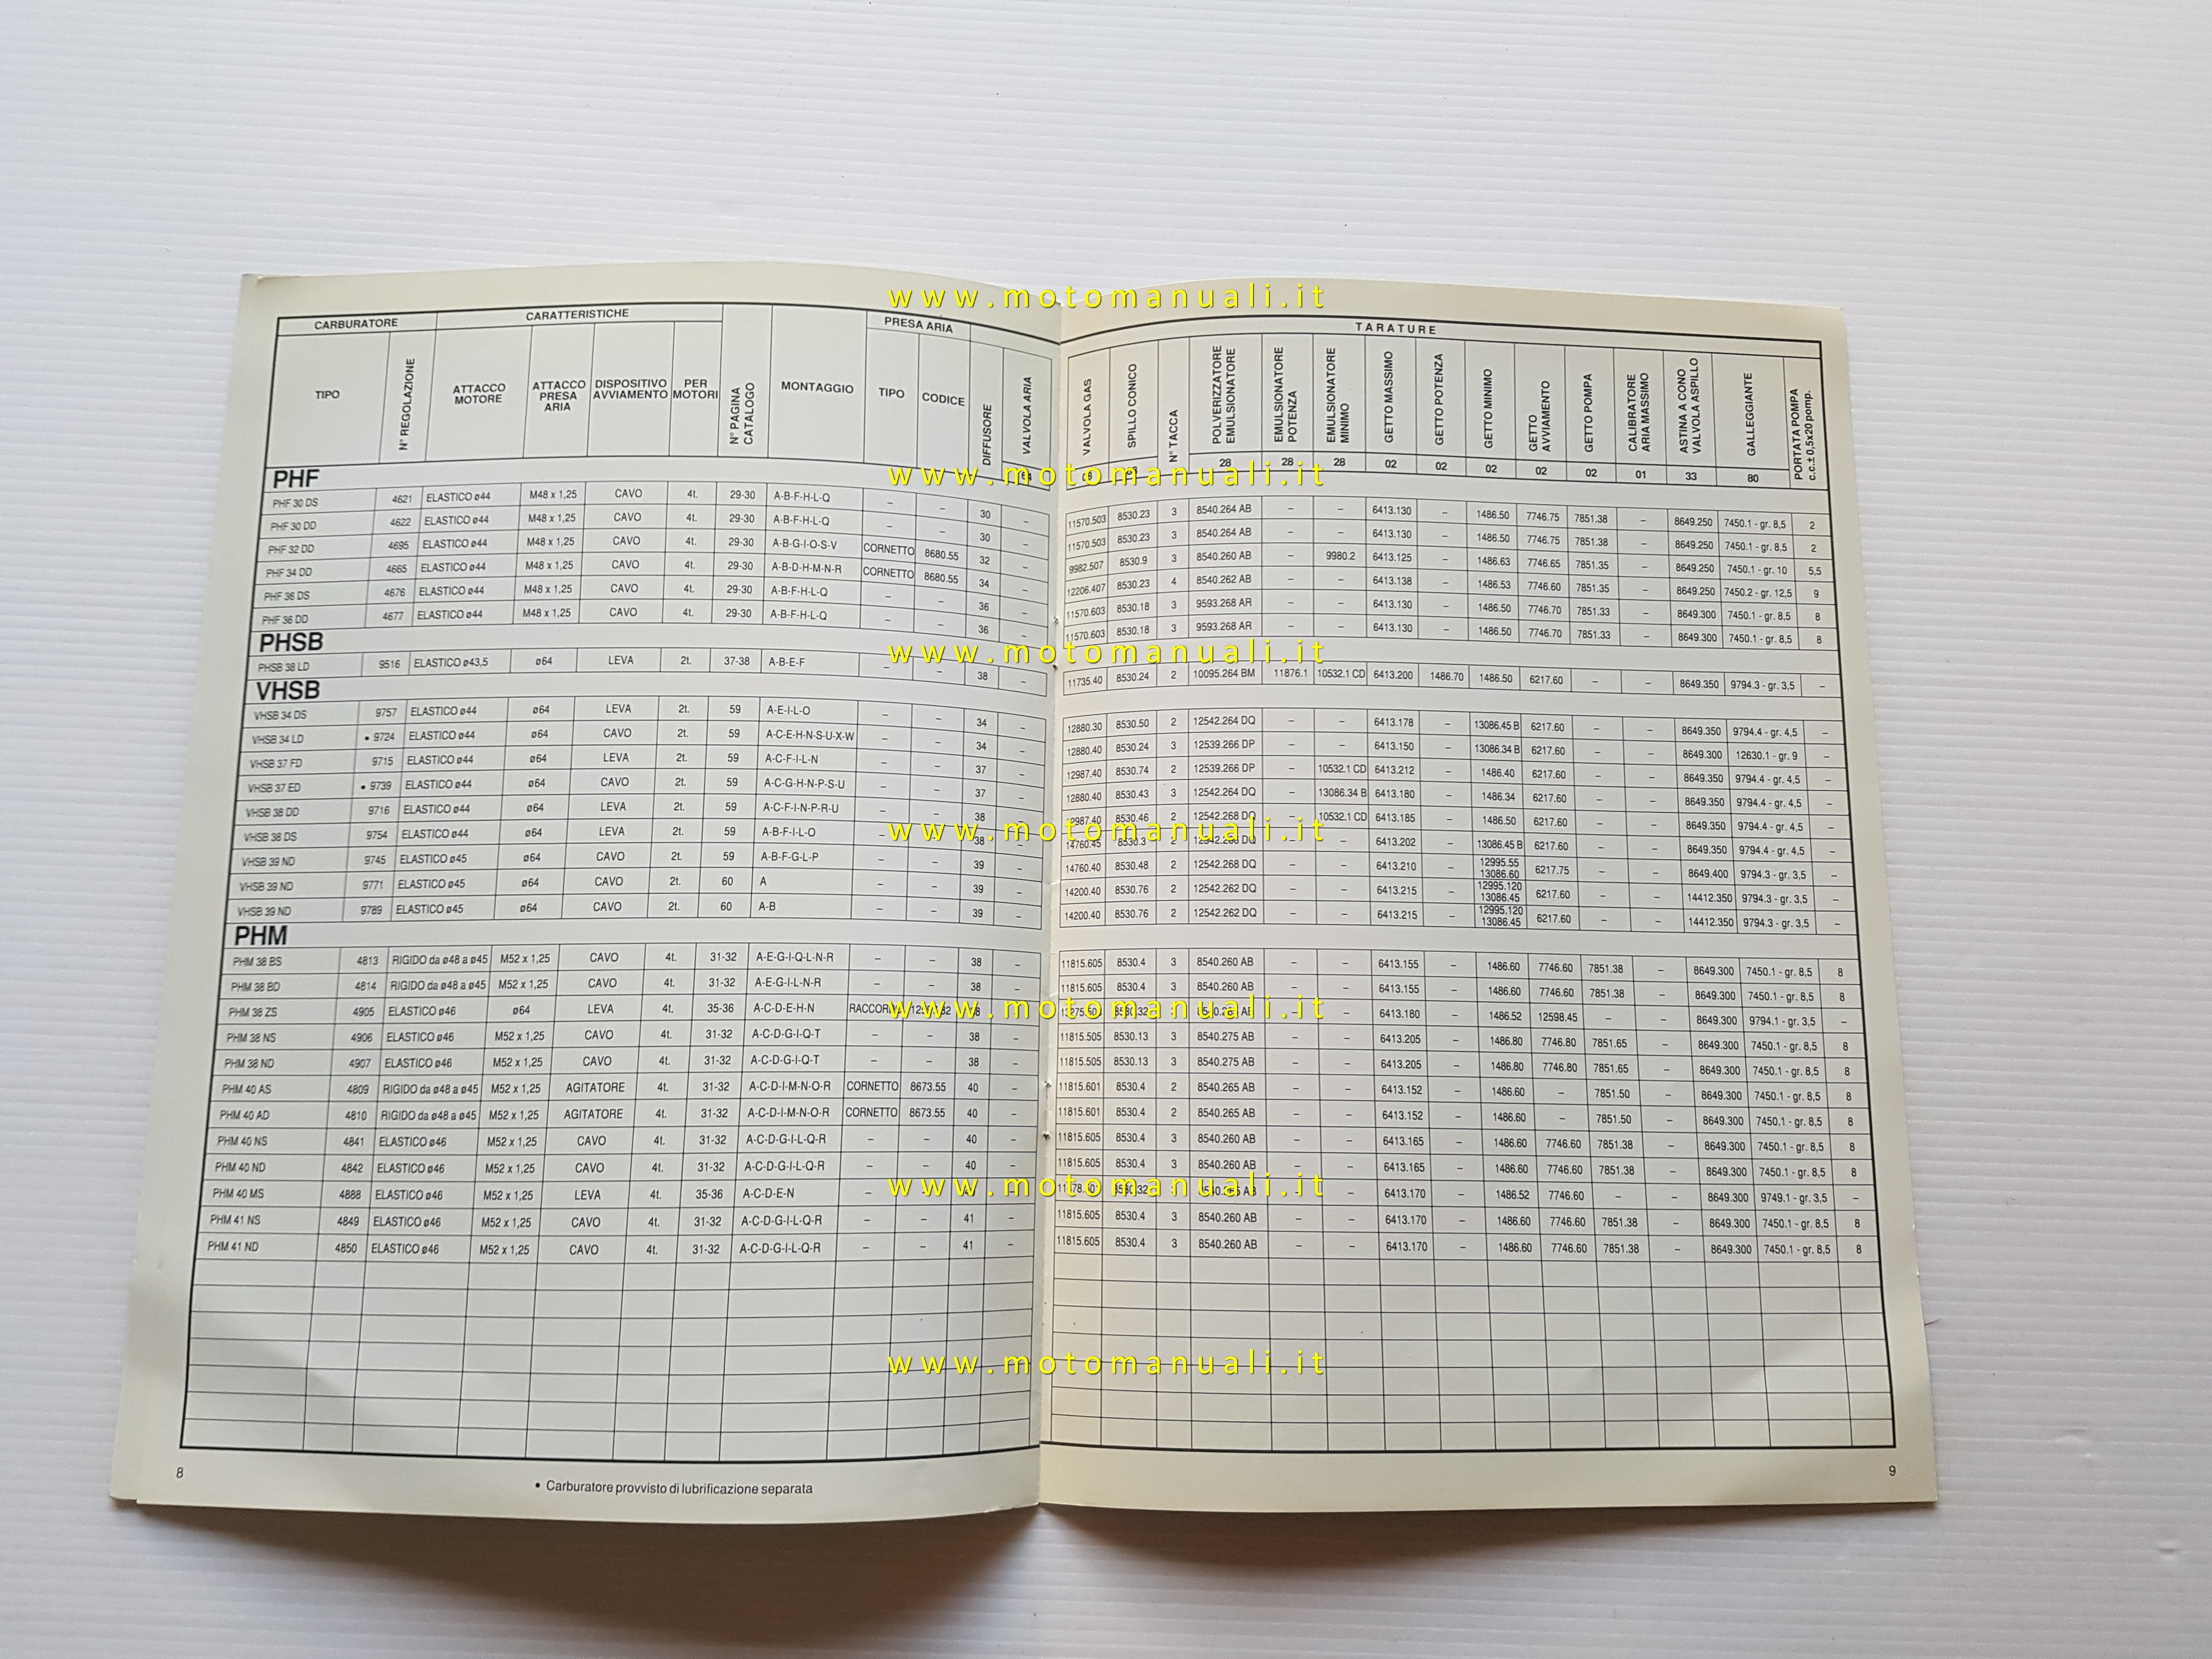 www.motomanuali.it
CARBURATORE CARATTERISTICHE N° PAGINA CATALOGO MONTAGGIO PRESA ARIA DIFFUSORE VALVOLA ARIA
TIPO N° REGOLAZIONE ATTACCO MOTORE ATTACCO PRESA ARIA DISPOSITIVO AVVIAMENTO PER MOTORI TIPO CODICE
TARATURE
VALVOLA GAS SPILLO CONICO N° TACCA POLVERIZZATORE EMULSIONATORE EMULSIONATORE POTENZA EMULSIONATORE MINIMO GETTO MASSIMO GETTO POTENZA GETTO MINIMO GETTO AVVIAMENTO GETTO POMPA CALIBRATORE ARIA MASSIMO ASTINA A CONO VALVOLA A SPILLO GALLEGGIANTE PORTATA POMPA c.c.± 0,5x20 pomp.
28 28 28 02 02 02 02 02 01 33 80
www.motomanuali.it
PHF
PHF 30 DS 4621 ELASTICO ø44 M48 x 1,25 CAVO 4t. 29-30 A-B-F-H-L-Q – – 30 – 11570.503 8530.23 3 8540.264 AB – – 6413.130 – 1486.50 7746.75 7851.38 – 8649.250 7450.1 - gr. 8,5 2
PHF 30 DD 4622 ELASTICO ø44 M48 x 1,25 CAVO 4t. 29-30 A-B-F-H-L-Q – – 30 – 11570.503 8530.23 3 8540.264 AB – – 6413.130 – 1486.50 7746.75 7851.38 – 8649.250 7450.1 - gr. 8,5 2
PHF 32 DD 4695 ELASTICO ø44 M48 x 1,25 CAVO 4t. 29-30 A-B-G-I-O-S-V CORNETTO 8680.55 32 – 9982.507 8530.9 3 8540.260 AB – 9980.2 6413.125 – 1486.63 7746.65 7851.35 – 8649.250 7450.1 - gr. 10 5,5
PHF 34 DD 4665 ELASTICO ø44 M48 x 1,25 CAVO 4t. 29-30 A-B-D-H-M-N-R CORNETTO 8680.55 34 – 12206.407 8530.23 4 8540.262 AB – – 6413.138 – 1486.53 7746.60 7851.35 – 8649.250 7450.2 - gr. 12,5 9
PHF 36 DS 4676 ELASTICO ø44 M48 x 1,25 CAVO 4t. 29-30 A-B-F-H-L-Q – – 36 – 11570.603 8530.18 3 9593.268 AR – – 6413.130 – 1486.50 7746.70 7851.33 – 8649.300 7450.1 - gr. 8,5 8
PHF 36 DD 4677 ELASTICO ø44 M48 x 1,25 CAVO 4t. 29-30 A-B-F-H-L-Q – – 36 – 11570.603 8530.18 3 9593.268 AR – – 6413.130 – 1486.50 7746.70 7851.33 – 8649.300 7450.1 - gr. 8,5 8
PHSB
www.motomanuali.it
PHSB 38 LD 9516 ELASTICO ø43,5 ø64 LEVA 2t. 37-38 A-B-E-F – – 38 – 11735.40 8530.24 2 10095.264 BM 11876.1 10532.1 CD 6413.200 1486.70 1486.50 6217.60 – – 8649.350 9794.3 - gr. 3,5 –
VHSB
VHSB 34 DS 9757 ELASTICO ø44 ø64 LEVA 2t. 59 A-E-I-L-O – – 34 – 12880.30 8530.50 2 12542.264 DQ – – 6413.178 – 13086.45 B 6217.60 – – 8649.350 9794.4 - gr. 4,5 –
VHSB 34 LD • 9724 ELASTICO ø44 ø64 CAVO 2t. 59 A-C-E-H-N-S-U-X-W – – 34 – 12880.40 8530.24 3 12539.266 DP – – 6413.150 – 13086.34 B 6217.60 – – 8649.300 12630.1 - gr. 9 –
VHSB 37 FD 9715 ELASTICO ø44 ø64 LEVA 2t. 59 A-C-F-I-L-N – – 37 – 12987.40 8530.74 2 12539.266 DP – 10532.1 CD 6413.212 – 1486.40 6217.60 – – 8649.350 9794.4 - gr. 4,5 –
VHSB 37 ED • 9739 ELASTICO ø44 ø64 CAVO 2t. 59 A-C-G-H-N-P-S-U – – 37 – 12880.40 8530.43 3 12542.264 DQ – 13086.34 B 6413.180 – 1486.34 6217.60 – – 8649.350 9794.4 - gr. 4,5 –
VHSB 38 DD 9716 ELASTICO ø44 ø64 LEVA 2t. 59 A-C-F-I-N-P-R-U – – 38 – 12987.40 8530.46 2 12542.268 DQ – 10532.1 CD 6413.185 – 1486.50 6217.60 – – 8649.350 9794.4 - gr. 4,5 –
www.motomanuali.it
VHSB 38 DS 9754 ELASTICO ø44 ø64 LEVA 2t. 59 A-B-F-I-L-O – – 38 – 14760.45 8530.3 2 DQ – – 6413.202 – 13086.45 B 6217.60 – – 8649.350 9794.4 - gr. 4,5 –
VHSB 39 ND 9745 ELASTICO ø45 ø64 CAVO 2t. 59 A-B-F-G-L-P – – 39 – 14760.40 8530.48 2 12542.268 DQ – – 6413.210 – 12995.55 13086.60 6217.75 – – 8649.400 9794.3 - gr. 3,5 –
VHSB 39 ND 9771 ELASTICO ø45 ø64 CAVO 2t. 60 A – – 39 – 14200.40 8530.76 2 12542.262 DQ – – 6413.215 – 12995.120 13086.45 6217.60 – – 14412.350 9794.3 - gr. 3,5 –
VHSB 39 ND 9789 ELASTICO ø45 ø64 CAVO 2t. 60 A-B – – 39 – 14200.40 8530.76 2 12542.262 DQ – – 6413.215 – 12995.120 13086.45 6217.60 – – 14412.350 9794.3 - gr. 3,5 –
PHM
PHM 38 BS 4813 RIGIDO da ø48 a ø45 M52 x 1,25 CAVO 4t. 31-32 A-E-G-I-Q-L-N-R – – 38 – 11815.605 8530.4 3 8540.260 AB – – 6413.155 – 1486.60 7746.60 7851.38 – 8649.300 7450.1 - gr. 8,5 8
PHM 38 BD 4814 RIGIDO da ø48 a ø45 M52 x 1,25 CAVO 4t. 31-32 A-E-G-I-L-N-R – – 38 – 11815.605 8530.4 3 8540.260 AB – – 6413.155 – 1486.60 7746.60 7851.38 – 8649.300 7450.1 - gr. 8,5 8
PHM 38 ZS 4905 ELASTICO ø46 ø64 LEVA 4t. 35-36 A-C-D-E-H-N – – – 6413.180 – 1486.52 12598.45 – – 8649.300 9794.1 - gr. 3,5 –
www.motomanuali.it
PHM 38 NS 4906 ELASTICO ø46 M52 x 1,25 CAVO 4t. 31-32 A-C-D-G-I-Q-T – – 38 – 11815.505 8530.13 3 8540.275 AB – – 6413.205 – 1486.80 7746.80 7851.65 – 8649.300 7450.1 - gr. 8,5 8
PHM 38 ND 4907 ELASTICO ø46 M52 x 1,25 CAVO 4t. 31-32 A-C-D-G-I-Q-T – – 38 – 11815.505 8530.13 3 8540.275 AB – – 6413.205 – 1486.80 7746.80 7851.65 – 8649.300 7450.1 - gr. 8,5 8
PHM 40 AS 4809 RIGIDO da ø48 a ø45 M52 x 1,25 AGITATORE 4t. 31-32 A-C-D-I-M-N-O-R CORNETTO 8673.55 40 – 11815.601 8530.4 2 8540.265 AB – – 6413.152 – 1486.60 – 7851.50 – 8649.300 7450.1 - gr. 8,5 8
PHM 40 AD 4810 RIGIDO da ø48 a ø45 M52 x 1,25 AGITATORE 4t. 31-32 A-C-D-I-M-N-O-R CORNETTO 8673.55 40 – 11815.601 8530.4 2 8540.265 AB – – 6413.152 – 1486.60 – 7851.50 – 8649.300 7450.1 - gr. 8,5 8
PHM 40 NS 4841 ELASTICO ø46 M52 x 1,25 CAVO 4t. 31-32 A-C-D-G-I-L-Q-R – – 40 – 11815.605 8530.4 3 8540.260 AB – – 6413.165 – 1486.60 7746.60 7851.38 – 8649.300 7450.1 - gr. 8,5 8
PHM 40 ND 4842 ELASTICO ø46 M52 x 1,25 CAVO 4t. 31-32 A-C-D-G-I-L-Q-R – – 40 – 11815.605 8530.4 3 8540.260 AB – – 6413.165 – 1486.60 7746.60 7851.38 – 8649.300 7450.1 - gr. 8,5 8
PHM 40 MS 4888 ELASTICO ø46 M52 x 1,25 LEVA 4t. 35-36 A-C-D-E-N – – 6413.170 – 1486.52 7746.60 – – 8649.300 9749.1 - gr. 3,5 –
www.motomanuali.it
PHM 41 NS 4849 ELASTICO ø46 M52 x 1,25 CAVO 4t. 31-32 A-C-D-G-I-L-Q-R – – 41 – 11815.605 8530.4 3 8540.260 AB – – 6413.170 – 1486.60 7746.60 7851.38 – 8649.300 7450.1 - gr. 8,5 8
PHM 41 ND 4850 ELASTICO ø46 M52 x 1,25 CAVO 4t. 31-32 A-C-D-G-I-L-Q-R – – 41 – 11815.605 8530.4 3 8540.260 AB – – 6413.170 – 1486.60 7746.60 7851.38 – 8649.300 7450.1 - gr. 8,5 8
www.motomanuali.it
8
• Carburatore provvisto di lubrificazione separata
9